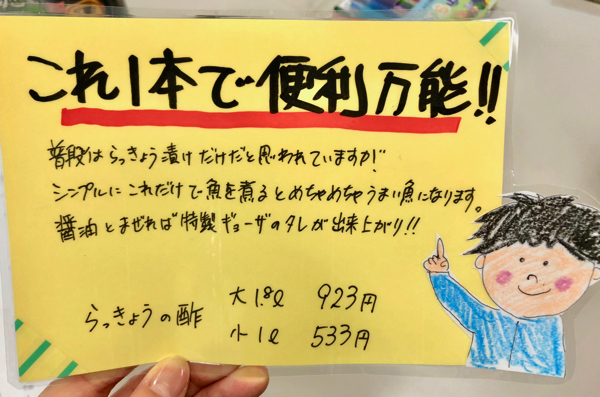 これ1本で便利万能!!
普段はらっきょう漬けだけだと思われていますが、
シンプルにこれだけで魚を煮るとめちゃめちゃうまい魚になります。
醤油とまぜれば特製ギョーザのタレが出来上がり!!
らっきょうの酢
大1.8ℓ 923円
小1ℓ 533円